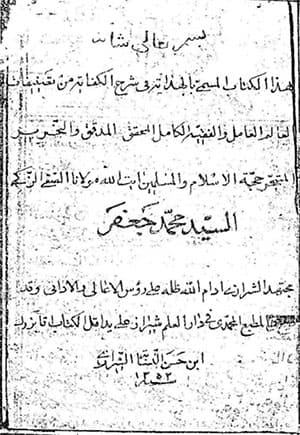 بسمه تعالی شانه
هذا الکتاب المسمی بالهدایة فی شرح الکفایة من تصنیفات
العالم العامل والفقیه الکامل المحقق المدقق والنحریر
حجة الاسلام والمسلمین ایت الله مولانا التقی الزکی
السید محمد جعفر
مجتهد الشیرازی ادام الله ظله علی رؤس الاعالی والادانی وقد
المطبع المحمدی دار العلم شیراز علی ید اقل الکتاب
ابن حسن
۱۳۵۳